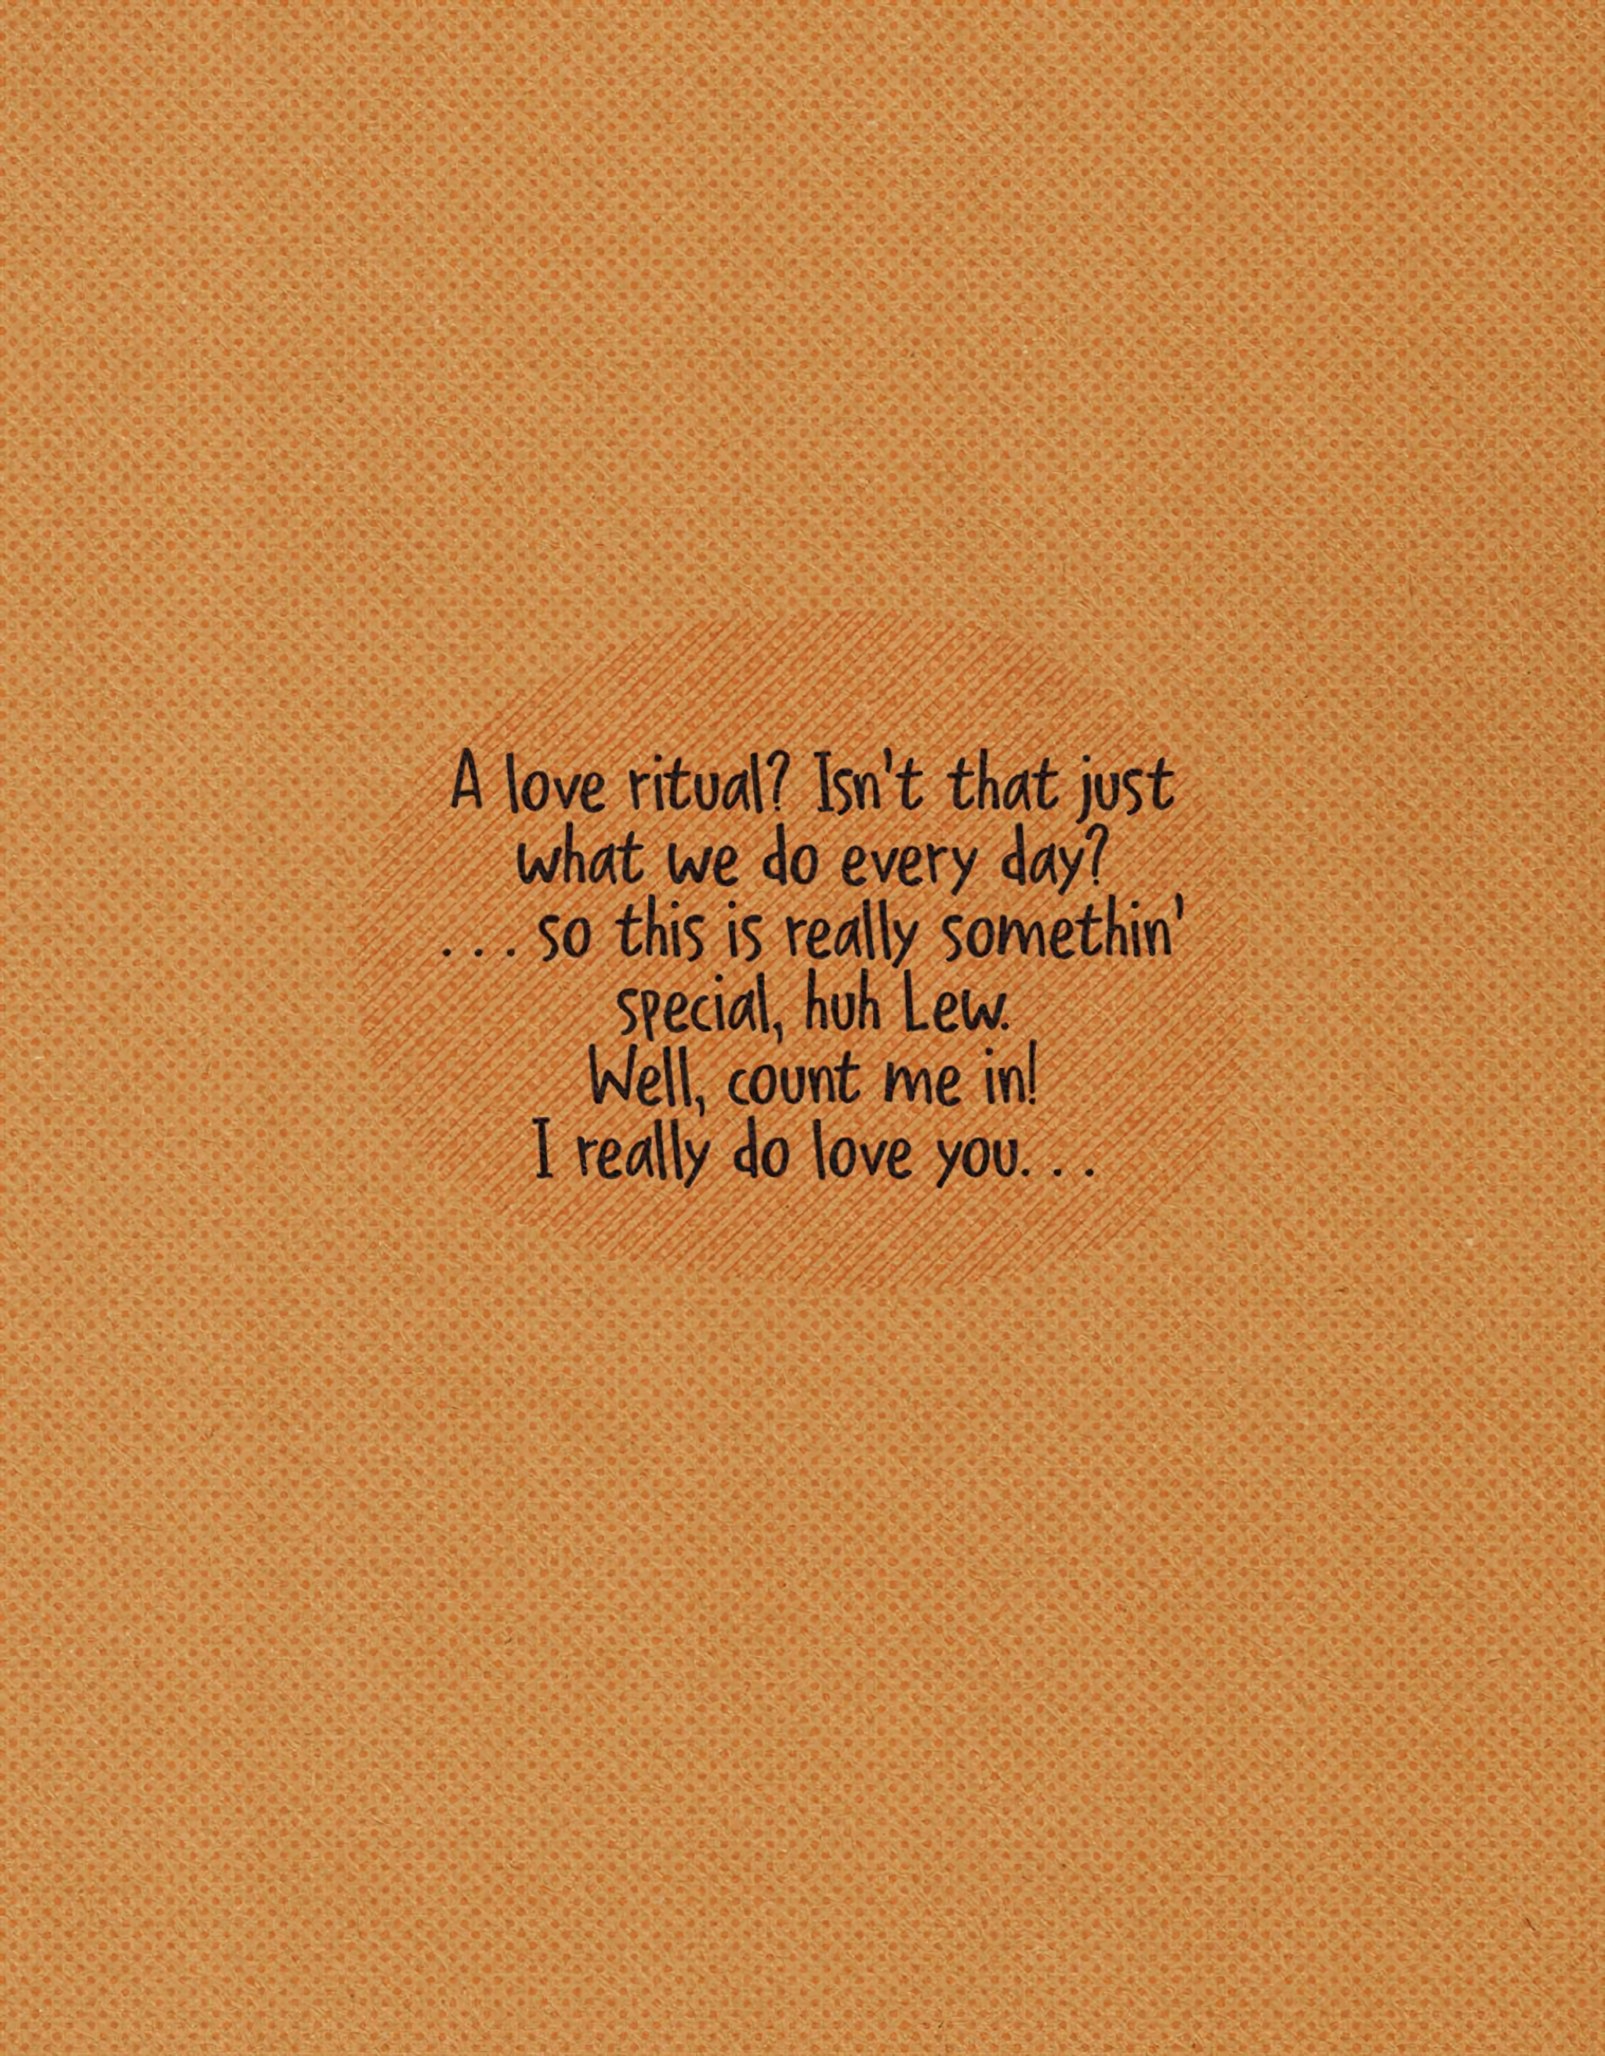 A love ritual? Isn't that just
what we do every day?
. . . so this is really somethin'
special, huh Lew.
Well, count me in!
I really do love you. . .